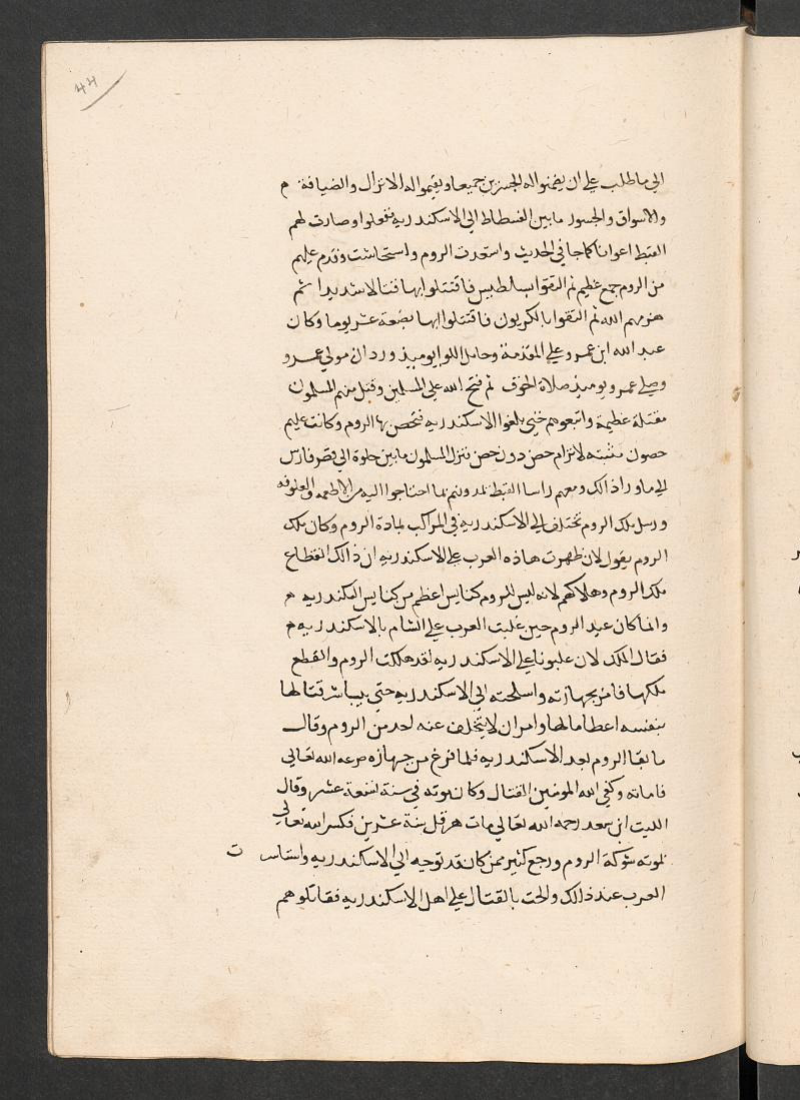 ٤٤
الي ما طلب علي ان يضمنوا له الجسرين جميعا ويقيموا له الانزال والضيافة م
والاسواق والجسور ما بين الفسطاط الي الاسكندريه ففعلوا وصارت لهم
القبط اعوانا كما جا في الحديث واستعدت الروم واستجاشت وقدم عليهم
من الروم جمع عظيم ثم التقوا بسلطيس فاقتتلوا بها قتالا شديدا ثم
هزمهم الله ثم التقوا بالكريون فاقتتلوا بها بضعة عشر يوما وكان
عبد الله ابن عمرو علي المقدمة وحامل اللوا يوميذ وردان مولي عمرو
وصلي عمرو يوميذ صلاة الخوف ثم فتح الله علي المسلمين وقتل منهم المسلمون
مقتلة عظيمة واتبعوهم حتي بلغوا الاسكندريه فتحصن بها الروم وكانت عليهم
حصون متينه لا ترام حصن دون حصن فنزل المسلمون ما بين حلوة الي قصر فارس
الي ما ورا ذالك ومعهم راسا القبط يمدونهم بما احتاجوا اليه من الاطعمه والعلوفه
ورسل ملك الروم تختلف الي الاسكندريه في المراكب بمادة الروم وكان ملك
الروم يقول لان ظهرت هاذه العرب علي الاسكندريه ان ذالك انقطاع
ملك الروم وهلاكهم لانه ليس للروم كنايس اعظم من كنايس اسكندريه م
وانما كان عيد الروم حين غلبت العرب علي الشام بالاسكندريه م
فقال الملك لان غلبونا علي الاسكندريه لقد هلكت الروم وانقطع
ملكها فامر بجهازته واسلحته الي الاسكندريه حتي يباشر قتالها
بنفسه اعظاما لها وامر ان لا يتخلف عنه احد من الروم وقال
ما بقا الروم بعد الاسكندريه فلما فرغ من جهازه صرعه الله تعالي
فاماته وكفي الله المومنين القتال وكان موته في سنة تسعة عشر وقال
الليت ابن سعد رحمه الله تعالي مات هرقل سنة عشرين فكسر الله تعالي
بموته شوكة الروم ورجع كثير ممن كان قد توجه الي الاسكندريه واستاسـ ت
العرب عند ذالك والحت بالقتال علي اهل الاسكندريه فقاتلوهم